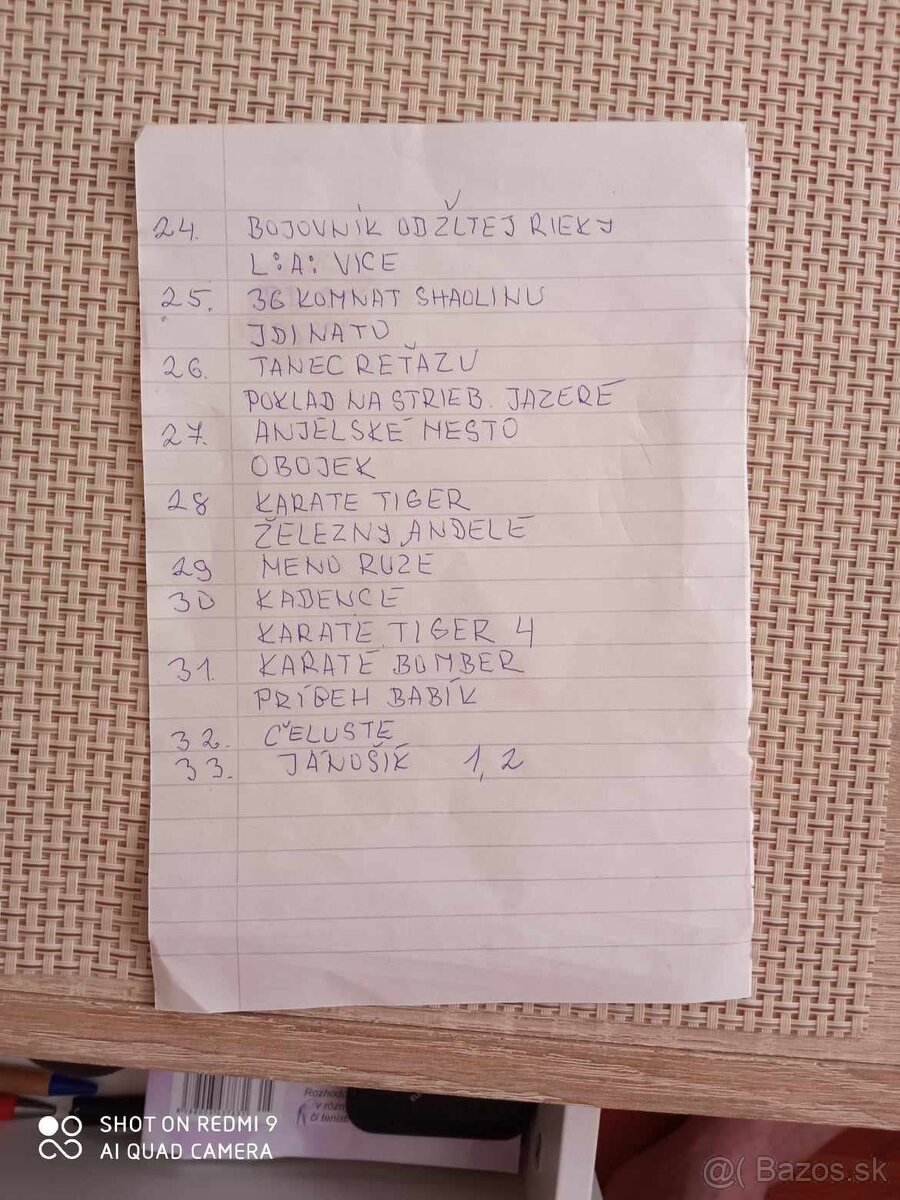 24. BOJOVNÍK OD ŽLTEJ RIEKY
L:A: VICE
25. 36 KOMNAT SHAOLINU
JDI NA TO
26. TANEC REŤAZU
POKLAD NA STRIEB. JAZERE
27. ANJELSKÉ MESTO
OBOJEK
28 KARATE TIGER
ŽELEZNY ANDELE
29 MENO RUZE
30 KADENCE
KARATE TIGER 4
31. KARATE BOMBER
PRÍBEH BABÍK
32. ČELUSTE
33. JÁNOŠÍK 1,2
Rozhod
v rôzn
či tenis
SHOT ON REDMI 9
AI QUAD CAMERA
@( Bazos.sk